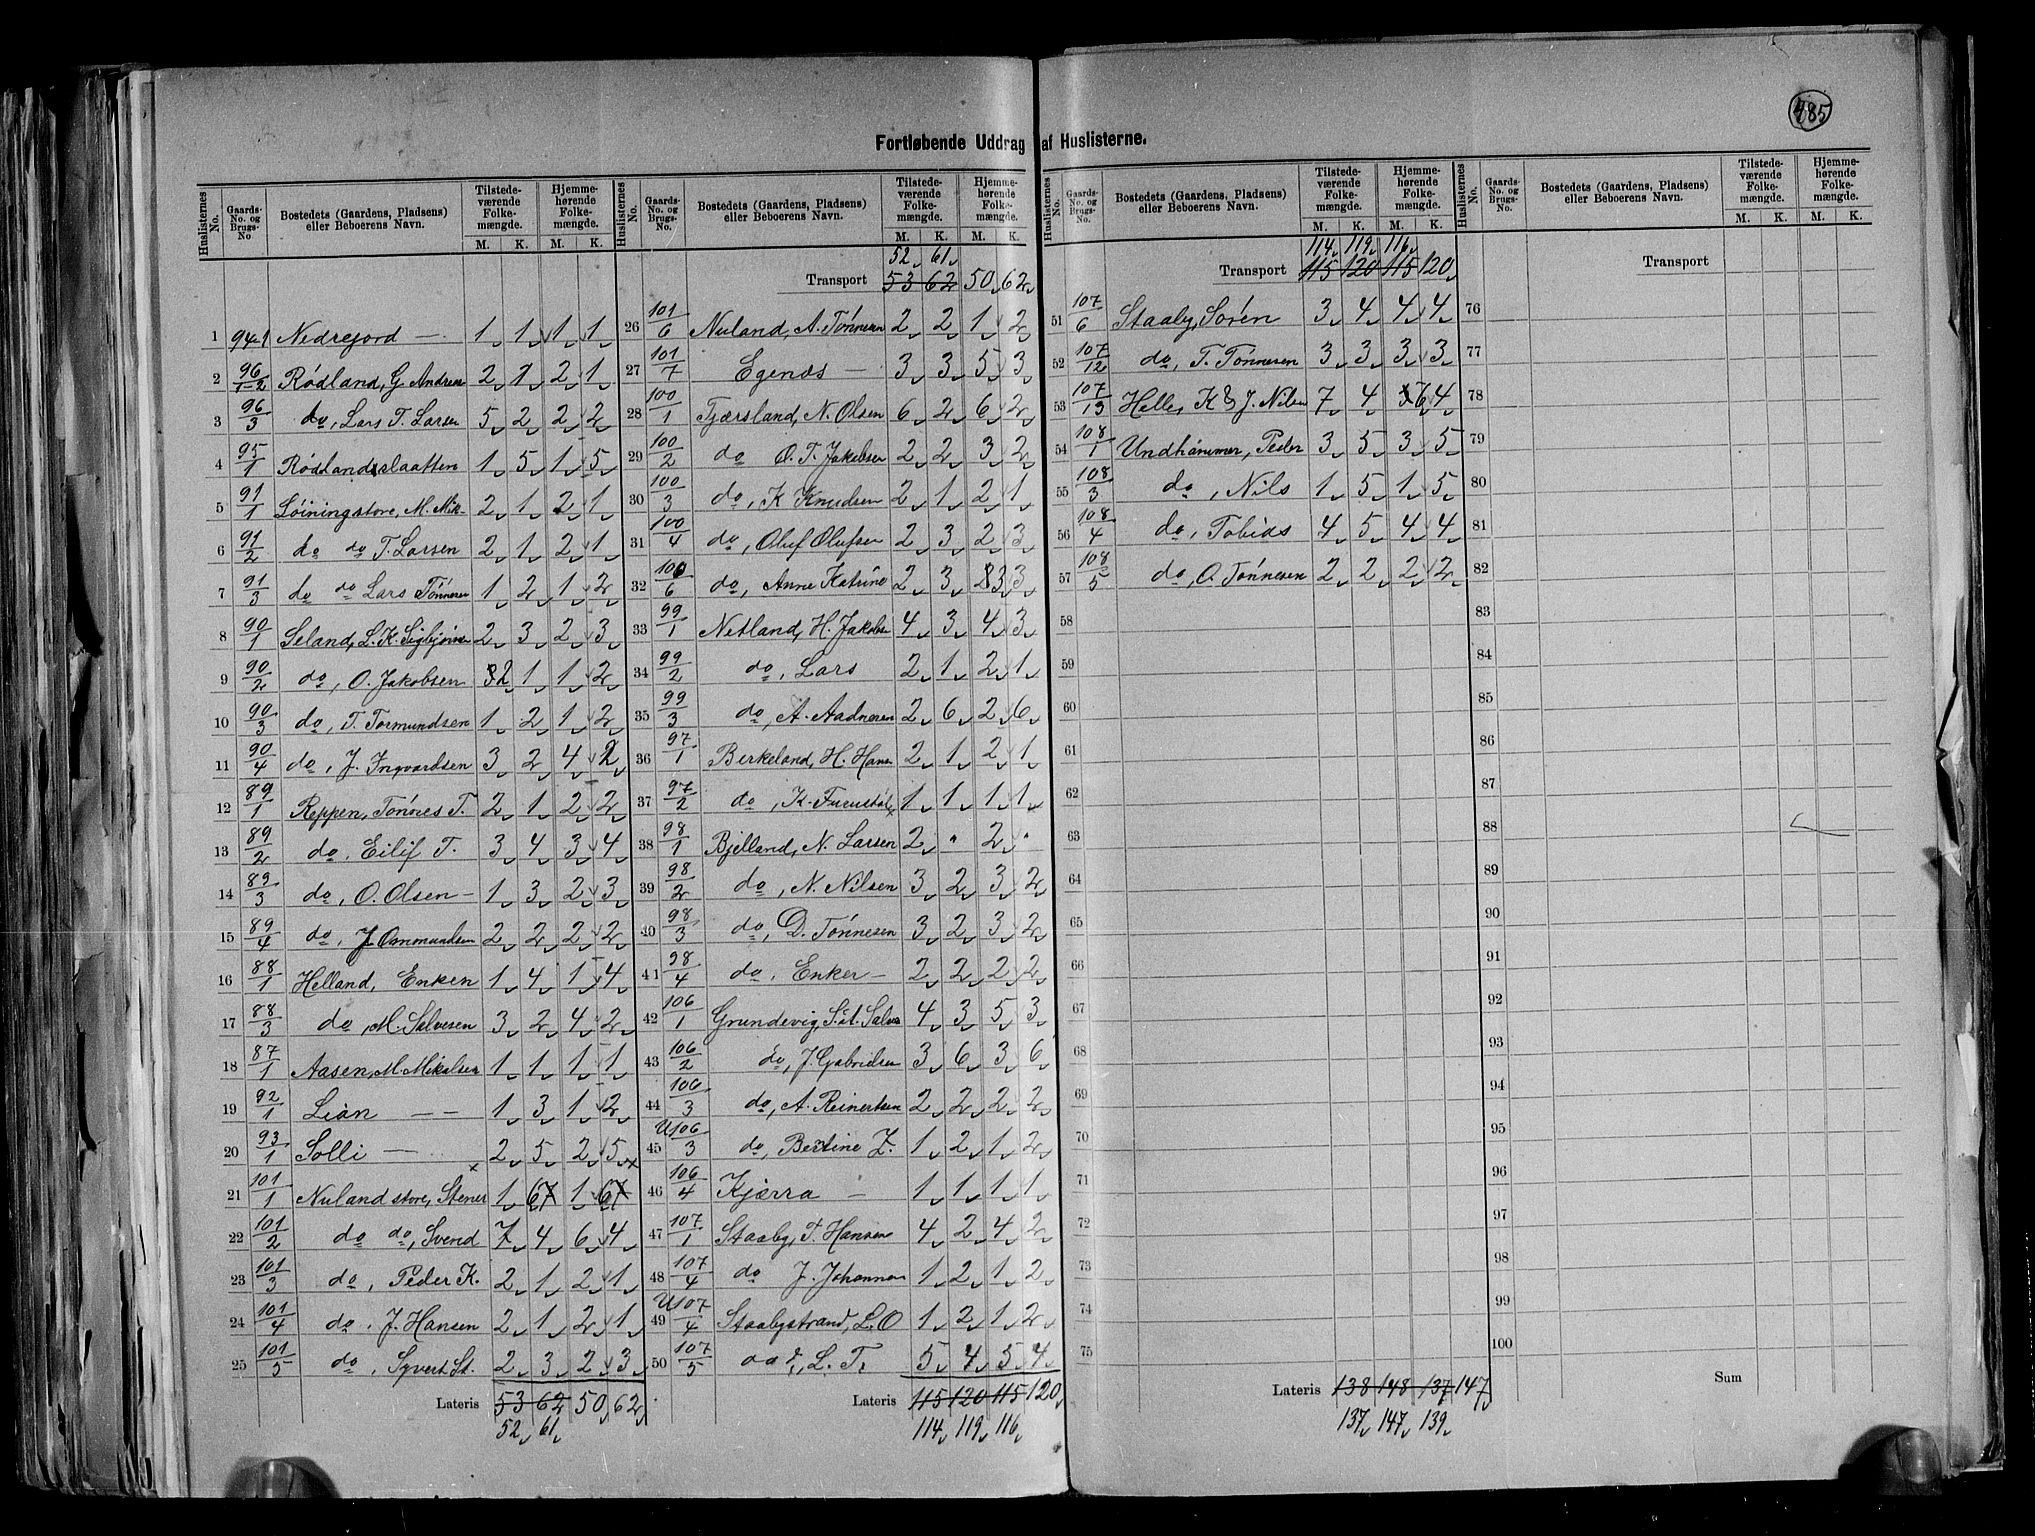 485
Fortløbende Uddrag af Huslisterne.
Huslisternes No. | Gaards-No. og Brugs-No. | Bostedets (Gaardens, Pladsens) eller Beboerens Navn. | Tilstedeværende Folkemængde. M. K. | Hjemmehørende Folkemængde. M. K.
1 94-1 Nedrejord — 1 1 1 1
2 96/1-2 Rødland, G. Andrea 2 1 2 1
3 96/3 do, Lars T. Larsen 5 2 2 2
4 95/1 Rødlandsslaatten 1 5 1 5
5 91/1 Løiningstore, M. Mik- 2 1 2 1
6 91/2 do do T. Larsen 2 1 2 1
7 91/3 do do Lars Tønnesen 1 2 1 2
8 90/1 Seland, L. K. Sigbjørnsen 2 3 2 3
9 90/2 do, O. Jakobsen 2 1 1 2
10 90/3 do, T. Tormundsen 1 2 1 2
11 90/4 do, J. Ingvardsen 3 2 4 2
12 89/1 Reppen, Tønnes T. 2 1 2 2
13 89/2 do, Eilif T. 3 4 3 4
14 89/3 do, O. Olsen — 1 3 2 3
15 89/4 do, J. Ommundsen 2 2 2 2
16 88/1 Helland, Enken 1 4 1 4
17 88/3 do, M. Salvesen 3 2 4 2
18 87/1 Aasen, M. Mikalsen 1 1 1 1
19 92/1 Lian — — 1 3 1 2
20 93/1 Solli — 2 5 2 5
21 101/1 Nuland store, Stener 1 67 1 67
22 101/2 do do, Svend 7 4 6 4
23 101/3 do, Peder K. 2 1 2 1
24 101/4 do, J. Hansen 2 1 2 1
25 101/5 do, Syvert St. 2 3 2 3
Lateris 53 62 50 62
52 61
52 61
Transport 53 62 50 62
26 101/6 Nuland, A. Tønnesen 2 2 1 2
27 101/7 Egenæs — 3 3 5 3
28 100/1 Tjærsland, N. Olsen 6 2 6 2
29 100/2 do O. T. Jakobsen 2 2 3 2
30 100/3 do, K Knudsen 2 1 2 1
31 100/4 do, Oluf Olufsen 2 3 2 3
32 100/6 do, Anne Katrine 2 3 3 3
33 99/1 Netland, H. Jakobsen 4 3 4 3
34 99/2 do, Lars 2 1 2 1
35 99/3 do, A. Aadnesen 2 6 2 6
36 97/1 Birkeland, H. Hansen 2 1 2 1
37 97/2 do, K. 1 1 1 1
38 98/1 Bjelland, N. Larsen 2 " 2 "
39 98/2 do, N. Nilsen 3 2 3 2
40 98/3 do, D. Tønnesen 3 2 3 2
41 98/4 do, Enker — 2 2 2 2
42 106/1 Grundevig, S. St. Salve 4 3 5 3
43 106/2 do, J. Gabrielsen 3 6 3 6
44 106/3 do, A. Reinertsen 2 2 2 2
45 U106/3 do, Bertine Z. 1 2 1 2
46 106/4 Kjærra — 1 1 1 1
47 107/1 Staaby, T. Hansen 4 2 4 2
48 107/4 do J. Johannes 1 2 1 2
49 U107/4 Staabystrand, L. O 1 2 1 2
50 107/5 do, L. T. 5 4 5 4
Lateris 115 120 115 120
114 119 116
114 119 116
Transport 115 120 115 120
51 107/6 Staaby, Søren 3 4 4 4
52 107/12 do, T. Tønnesen 3 3 3 3
53 107/13 Helle, K & J. Nilsen 7 4 6 4
54 108/1 Undhammer, Peder 3 5 3 5
55 108/3 do, Nils 1 5 1 5
56 108/4 do, Tobias 4 5 4 4
57 108/5 do, O. Tønnesen 2 2 2 2
58
59
60
61
62
63
64
65
66
67
68
69
70
71
72
73
74
75
Lateris 138 148 137 147
137 147 139
Transport
76
77
78
79
80
81
82
83
84
85
86
87
88
89
90
91
92
93
94
95
96
97
98
99
100
Sum